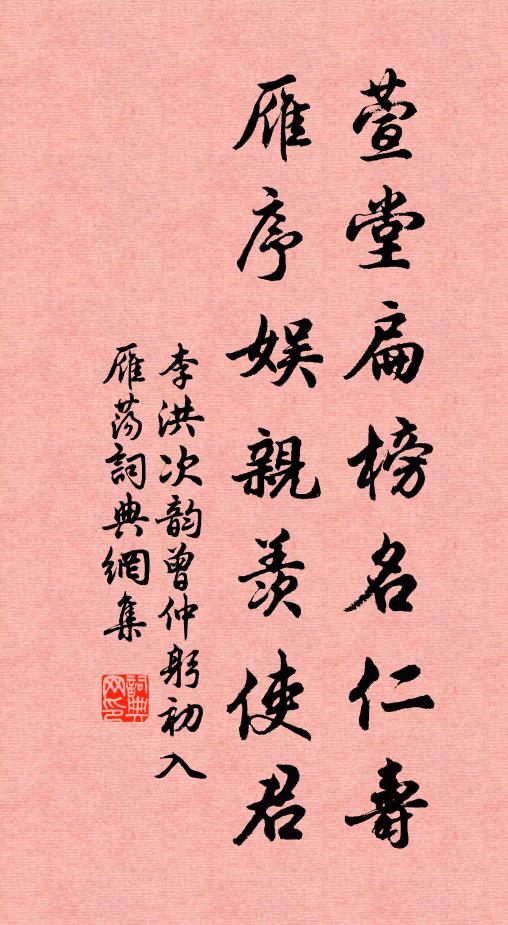 萱堂扁榜名仁壽
雁序娱親羨使君
李洪次韵曾仲躬初入
雁蕩詞典網集
詞典網印